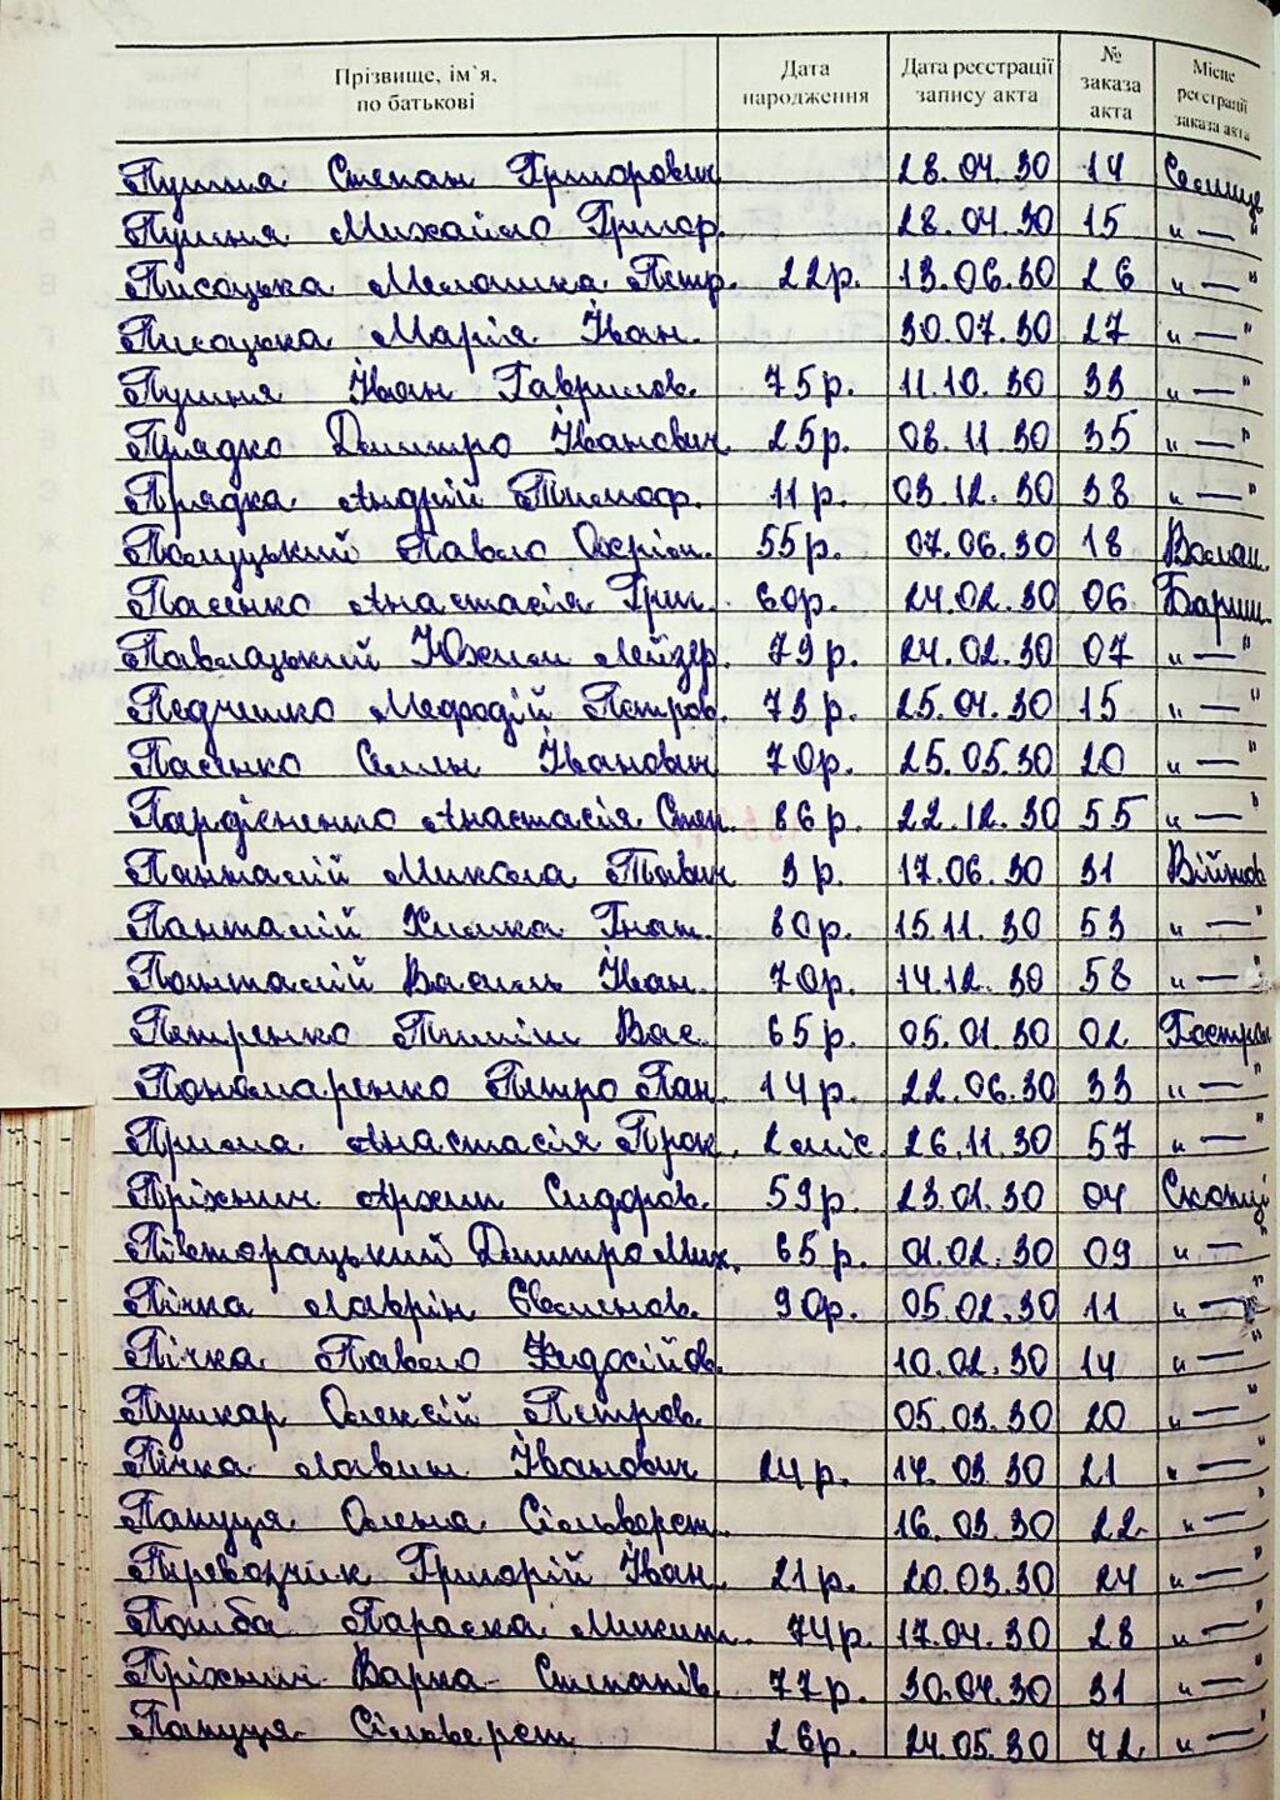 Прізвище, ім`я, по батькові Дата народження Дата реєстрації запису акта № заказа акта Місце реєстрації заказа акта
Пушня Степан Григорович 28.04.30 14 Селище
Пушня Михайло Григор. 28.04.30 15 "—"
Писоцька Меланка Петр. 22р. 13.06.30 26 "—"
Писоцька Марія Іван. 30.07.30 27 "—"
Пушня Іван Гаврилов. 75р. 11.10.30 33 "—"
Прядко Дмитро Іванович 25р. 08.11.30 35 "—"
Прядка Андрій Тимоф. 11р. 03.12.30 38 "—"
Полуцький Павло Охрім. 55р. 07.06.30 18 Волош.
Пасенко Анастасія Григ. 60р. 24.02.30 06 Бариш.
Павлоцький Юхим Лейзер. 79р. 24.02.30 07 "—"
Педченко Мефодій Петров. 73р. 25.04.30 15 "—"
Пасенко Семен Іванович 70р. 25.05.30 20 "—"
Пардієненко Анастасія Степ. 86р. 22.12.30 55 "—"
Панталій Микола Павич 3р. 17.06.30 31 Війтов
Панталій Химка Гнат. 80р. 15.11.30 53 "—"
Панталій Василь Іван. 70р. 14.12.30 58 "—"
Петренко Тиміш Вас. 65р. 05.01.30 02 Гостром
Пономаренко Петро Пан. 14р. 22.06.30 33 "—"
Прима Анастасія Прок. 2 міс. 26.11.30 57 "—"
Пріхнич Архип Сидоров. 59р. 23.01.30 04 Скопці
Півторацький Дмитро Мих. 65р. 01.02.30 09 "—"
Пічка Лаврін Євменов. 90р. 05.02.30 11 "—"
Пічка Павло Федосійов. 10.02.30 14 "—"
Пушкар Олексій Петров. 05.03.30 20 "—"
Пічка Лавин Іванович 24р. 14.03.30 21 "—"
Пануця Олена Сільверст. 16.03.30 22 "—"
Перевозчик Григорій Іван. 21р. 20.03.30 24 "—"
Пошба Параска Микит. 74р. 17.04.30 28 "—"
Пріхнич Варка Степанів. 77р. 30.04.30 31 "—"
Пануця Сільверст 26р. 24.05.30 42 "—"